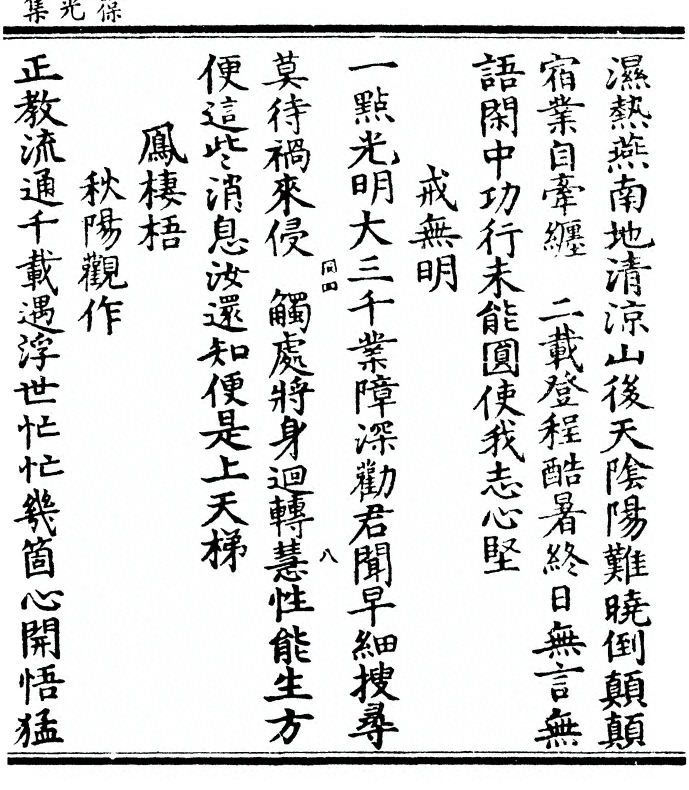 葆光集
濕熱燕南地清涼山後天陰陽難曉倒顛顛
宿業自牽纏　二載登程酷暑終日無言無
語閑中功行未能圓使我志心堅
戒無明
一點光明大三千業障深勸君聞早細搜尋
莫待禍來侵　觸處將身迴轉慧性能生方
便這些消息汝還知便是上天梯
鳳棲梧
秋陽觀作
正教流通千載遇浮世忙忙幾箇心開悟猛
同四
八